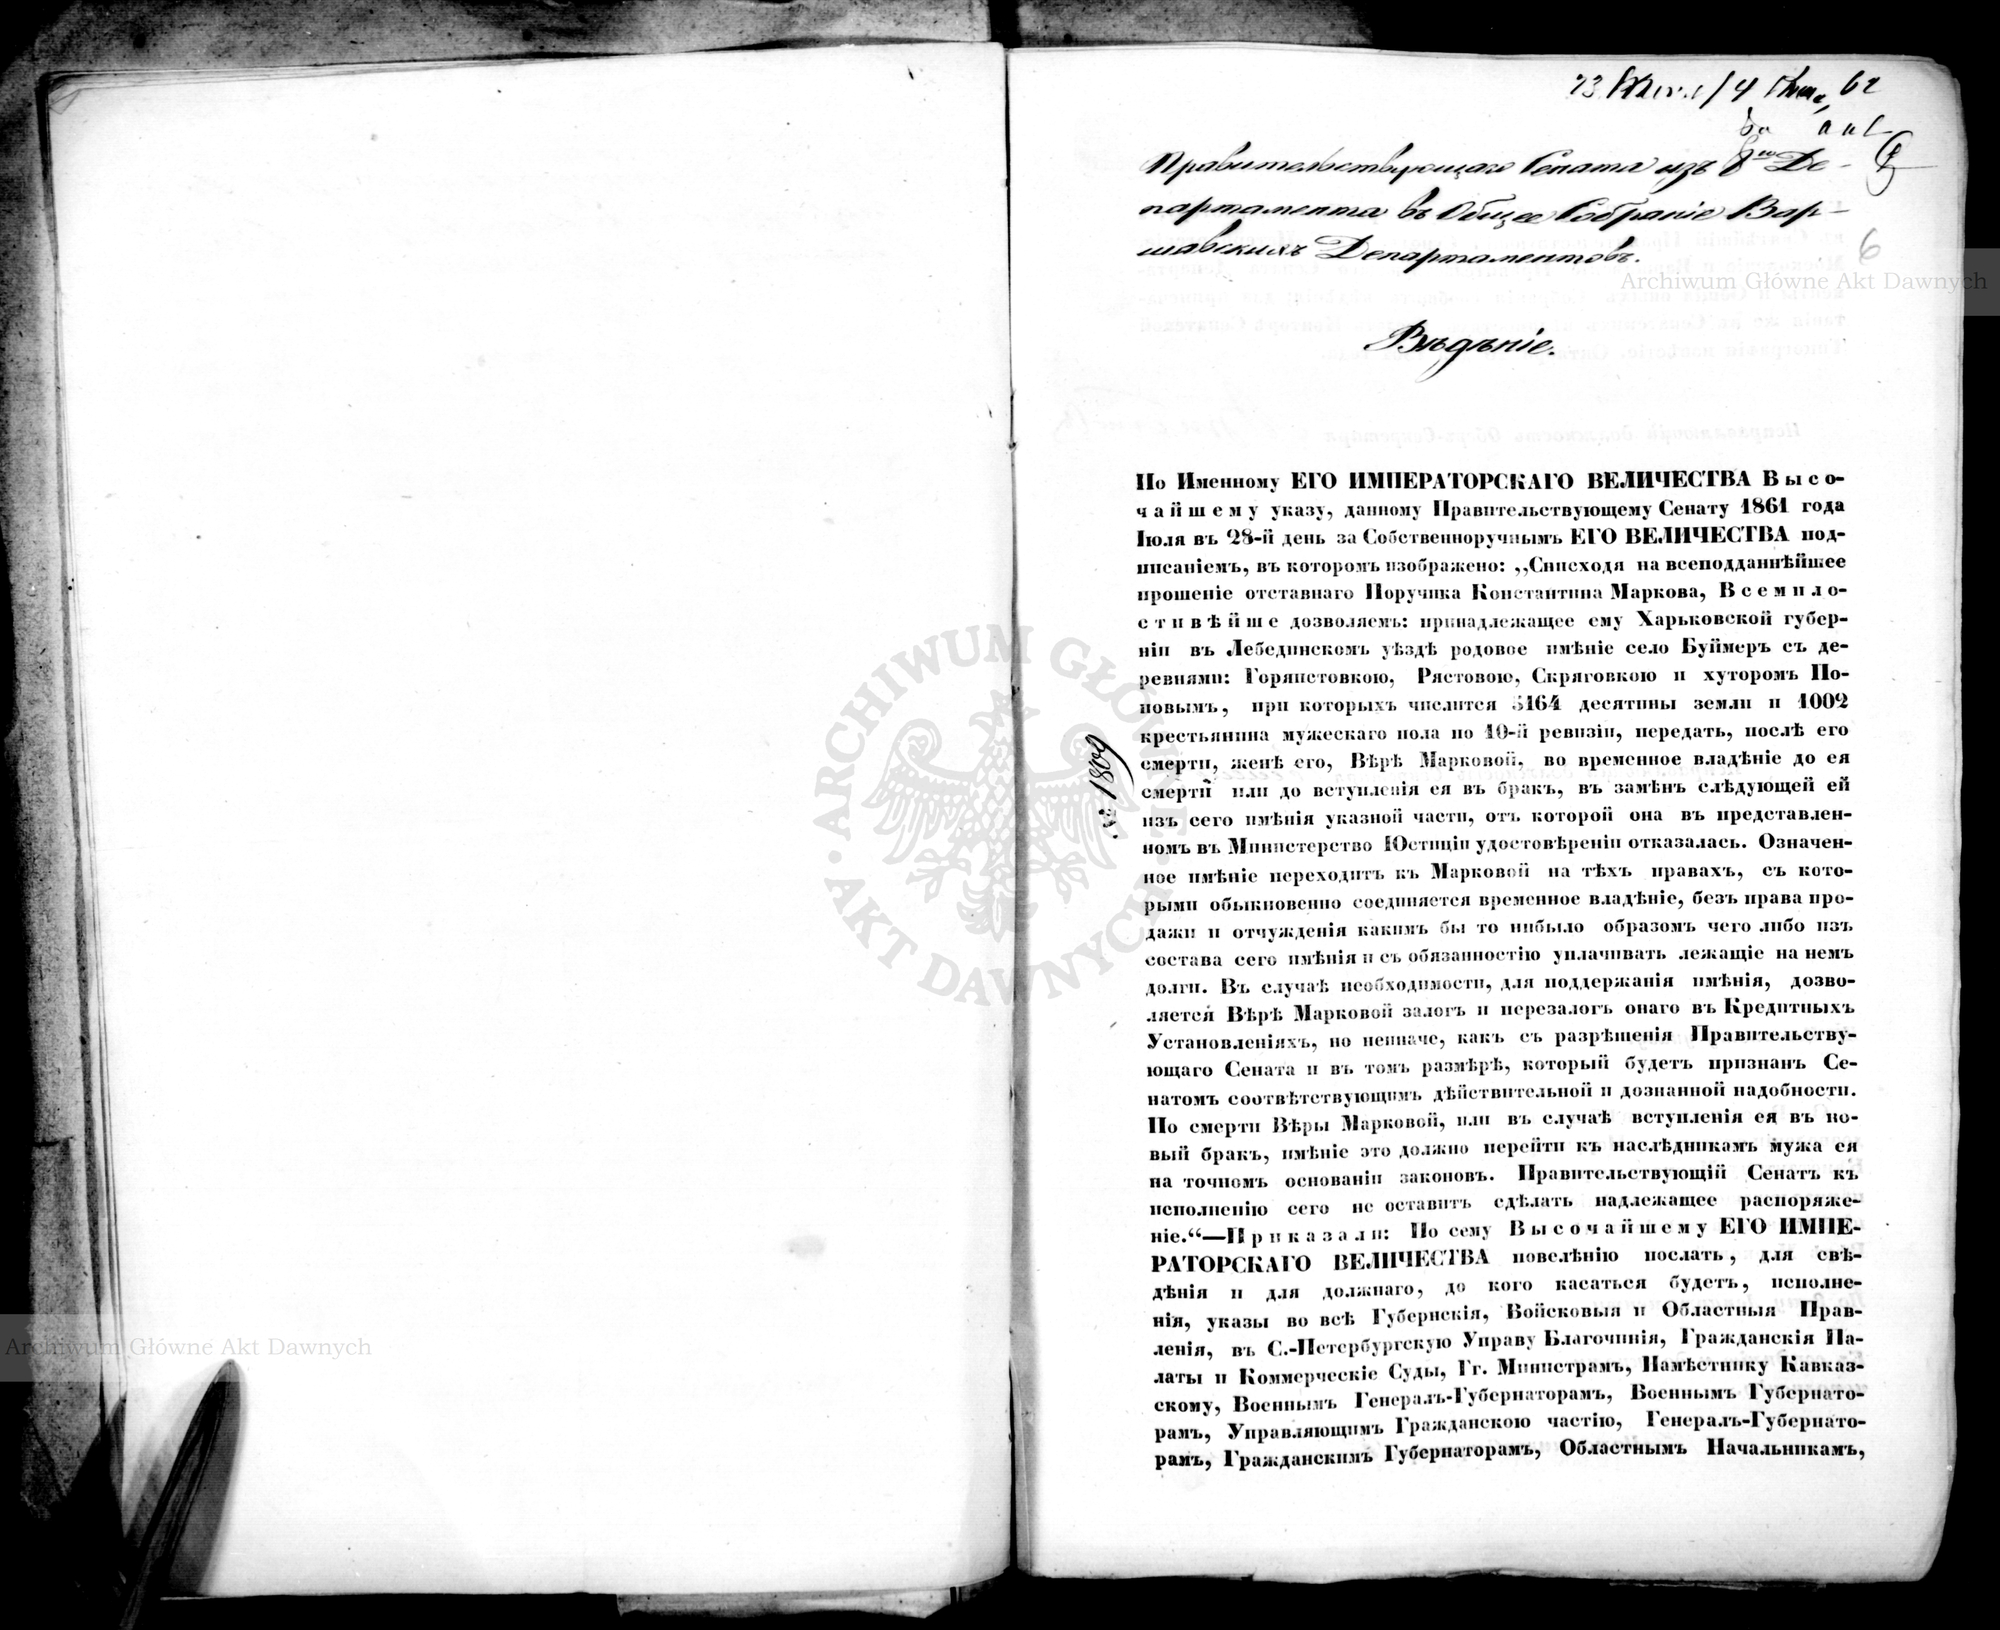 Правительствующаго Сената изъ 8го Де-
партамента въ Общее Собраніе Вар-
шавскихъ Департаментовъ.
6
Archiwum Główne Akt Dawnych
Вѣдѣніе.
По Именному ЕГО ИМПЕРАТОРСКАГО ВЕЛИЧЕСТВА Высо-
чайшему указу, данному Правительствующему Сенату 1861 года
Іюля въ 28-й день за Собственноручнымъ ЕГО ВЕЛИЧЕСТВА под-
писаніемъ, въ которомъ изображено: „Снисходя на всеподданнѣйшее
прошеніе отставнаго Поручика Константина Маркова, Всемило-
стивѣйше дозволяемъ: принадлежащее ему Харьковской губер-
ніи въ Лебединскомъ уѣздѣ родовое имѣніе село Буймеръ съ де-
ревнями: Горяистовкою, Рястовою, Скряговкою и хуторомъ По-
новымъ, при которыхъ числится 5164 десятины земли и 1002
крестьянина мужескаго пола по 10-й ревизіи, передать, послѣ его
смерти, женѣ его, Вѣрѣ Марковой, во временное владѣніе до ея
смерти или до вступленія ея въ бракъ, въ замѣнъ слѣдующей ей
изъ сего имѣнія указной части, отъ которой она въ представлен-
номъ въ Министерство Юстиціи удостовѣреніи отказалась. Означен-
ное имѣніе переходитъ къ Марковой на тѣхъ правахъ, съ кото-
рыми обыкновенно соединяется временное владѣніе, безъ права про-
дажи и отчужденія какимъ бы то нибыло образомъ чего либо изъ
состава сего имѣнія и съ обязанностію уплачивать лежащіе на немъ
долги. Въ случаѣ необходимости, для поддержанія имѣнія, дозво-
ляется Вѣрѣ Марковой залогъ и перезалогъ онаго въ Кредитныхъ
Установленіяхъ, но неиначе, какъ съ разрѣшенія Правительству-
ющаго Сената и въ томъ размѣрѣ, который будетъ признанъ Се-
натомъ соотвѣтствующимъ дѣйствительной и дознанной надобности.
По смерти Вѣры Марковой, или въ случаѣ вступленія ея въ но-
вый бракъ, имѣніе это должно перейти къ наслѣдникамъ мужа ея
на точномъ основаніи законовъ. Правительствующій Сенатъ къ
исполненію сего не оставитъ сдѣлать надлежащее распоряже-
ніе.“—Приказали: По сему Высочайшему ЕГО ИМПЕ-
РАТОРСКАГО ВЕЛИЧЕСТВА повелѣнію послать, для свѣ-
дѣнія и для должнаго, до кого касаться будетъ, исполне-
нія, указы во всѣ Губернскія, Войсковыя и Областныя Прав-
ленія, въ С.-Петербургскую Управу Благочинія, Гражданскія Па-
латы и Коммерческіе Суды, Гг. Министрамъ, Намѣстнику Кавказ-
скому, Военнымъ Генералъ-Губернаторамъ, Военнымъ Губернато-
рамъ, Управляющимъ Гражданскою частію, Генералъ-Губернато-
рамъ, Гражданскимъ Губернаторамъ, Областнымъ Начальникамъ,
№ 1809
ARCHIWUM GŁÓWNE
AKT DAWNYCH
Archiwum Główne Akt Dawnych